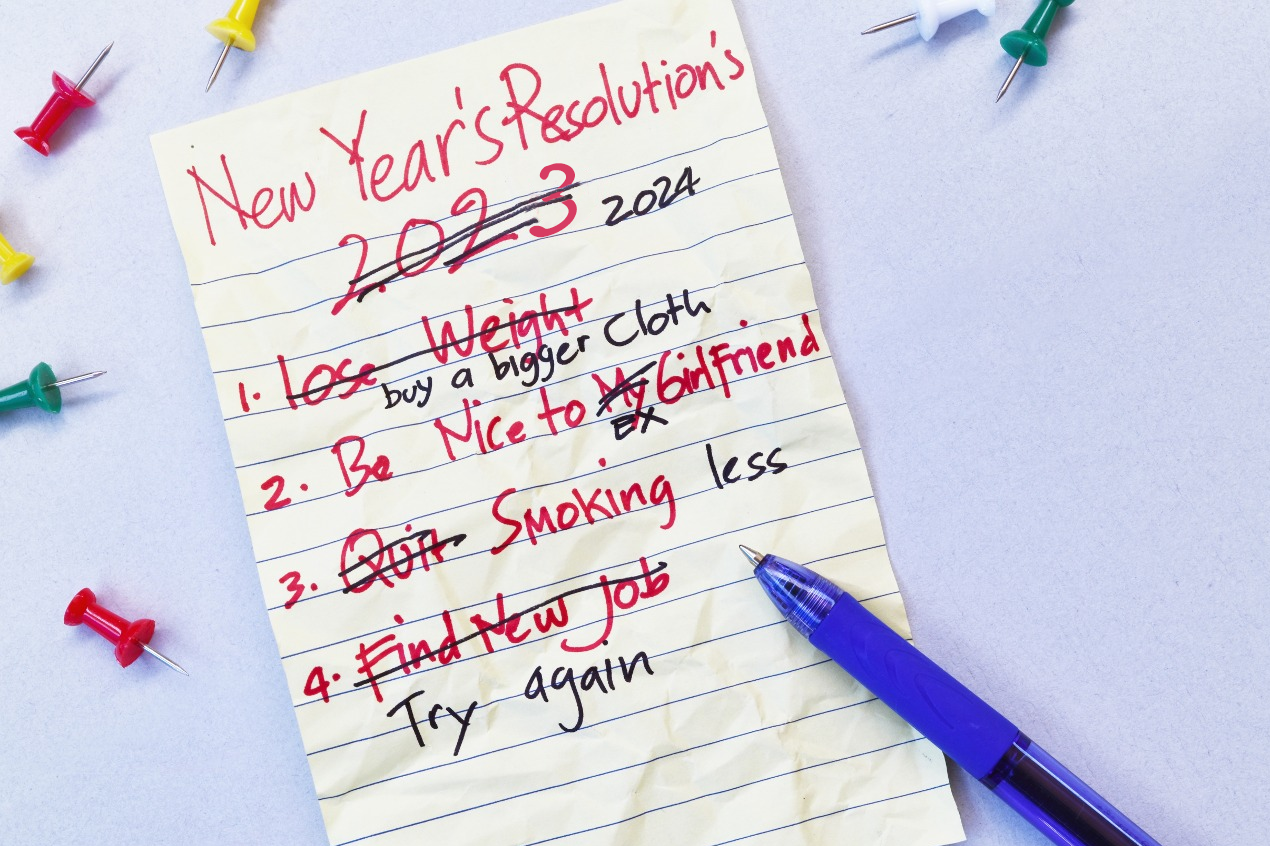 New Year's Resolution's
2023 2024
1. Lose Weight
buy a bigger Cloth
2. Be Nice to My Girlfriend
EX
3. Quit Smoking less
4. Find New Job
Try again